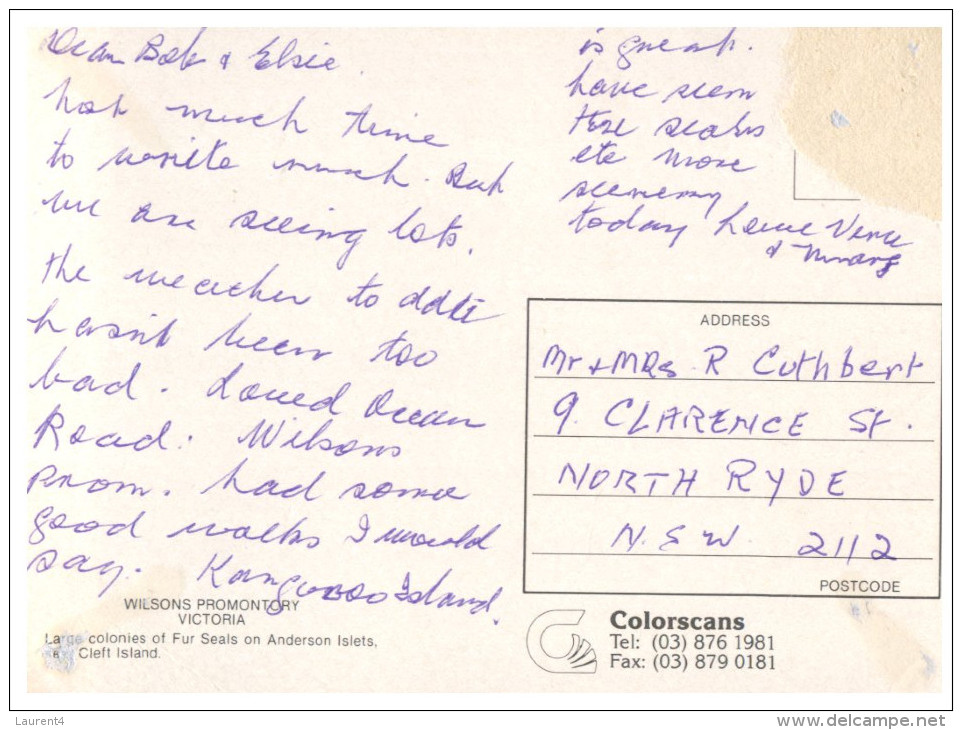 Dear Bob & Elsie.
not much time
to write much. But
we are seeing lots.
the weather to date
hasn't been too
bad. Loved Ocean
Road: Wilsons
Prom. had some
good walks I would
say. Kangaroo Island.
is great.
have seen
the seals
etc more
scenery
today Love Vera
&
ADDRESS
Mr + MRs. R Cuthbert
9. CLARENCE St.
NORTH RYDE
N.S.W. 2112
POSTCODE
WILSONS PROMONTORY
VICTORIA
Large colonies of Fur Seals on Anderson Islets,
Cleft Island.
Colorscans
Tel: (03) 876 1981
Fax: (03) 879 0181
Laurent4
www.delcampe.net